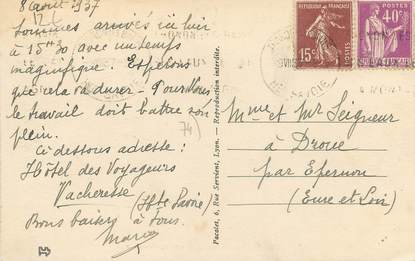 8 août 1937
Sommes arrivés ici hier
à 15h30 avec un temps
magnifique. Espérons
que cela va durer. Pour vous
le travail doit battre son
plein.
Ci dessous adresse :
Hôtel des Voyageurs
Vacheresse (Hte Savoie)
Bons baisers à tous.
74
Pacalet, 6, Rue Servient, Lyon. - Reproduction interdite.
RÉPUBLIQUE FRANÇAISE
15c
POSTES
40c
POSTES
Mme et Mr Seigneur
à Droue
par Epernon
(Eure et Loir)